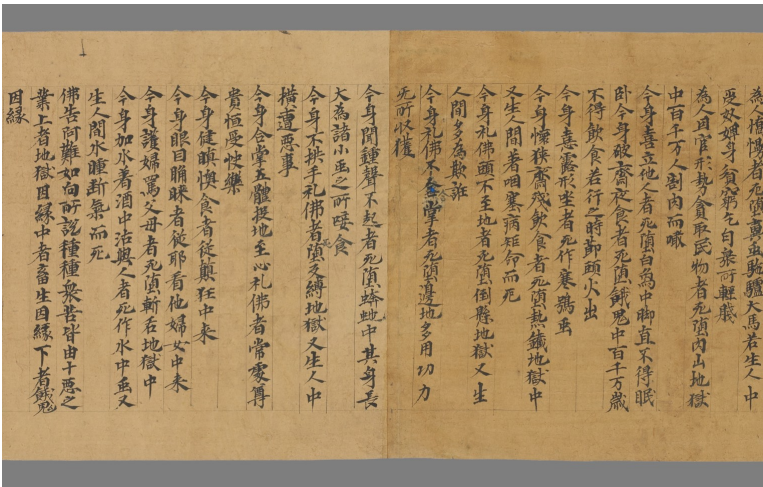 為人憍慢者死墮糞虫駞驢犬馬若生人中
受奴婢身貧窮乞匃衆所輕賤
為人因官形勢貪取民物者死墮肉山地獄
中百千万人割肉而噉
今身喜立他人者死墮白鳥中脚直不得眠
卧今身破齋夜食者死墮餓鬼中百千万歲
不得飲食若行之時節頭火出
今身憙露形坐者死作寒鴞虫
今身懷挾齋殘飲食者死墮熱鐵地獄中
又生人間著咽塞病短命而死
今身礼佛頭不至地者死墮倒懸地獄又生
人間多為欺誑
今身礼佛不合掌者死墮邊地多用功力
死所收獲
今身聞鍾聲不起者死墮蟒虵中其身長
大為諸小虫之所唼食
今身不拱手礼佛者死墮反縛地獄又生人中
橫遭惡事
今身合掌五體投地至心礼佛者常處尊
貴恒受快樂
今身健瞋懊食者從顛狂中来
今身眼目睞者從耶看他婦女中来
今身護婦罵父母者死墮斬舌地獄中
今身加水著酒中沽與人者死作水中虫又
生人間水腫斷氣而死
佛告阿難如向所說種種衆苦皆由十惡之
業上者地獄因緣中者畜生因緣下者餓鬼
因緣